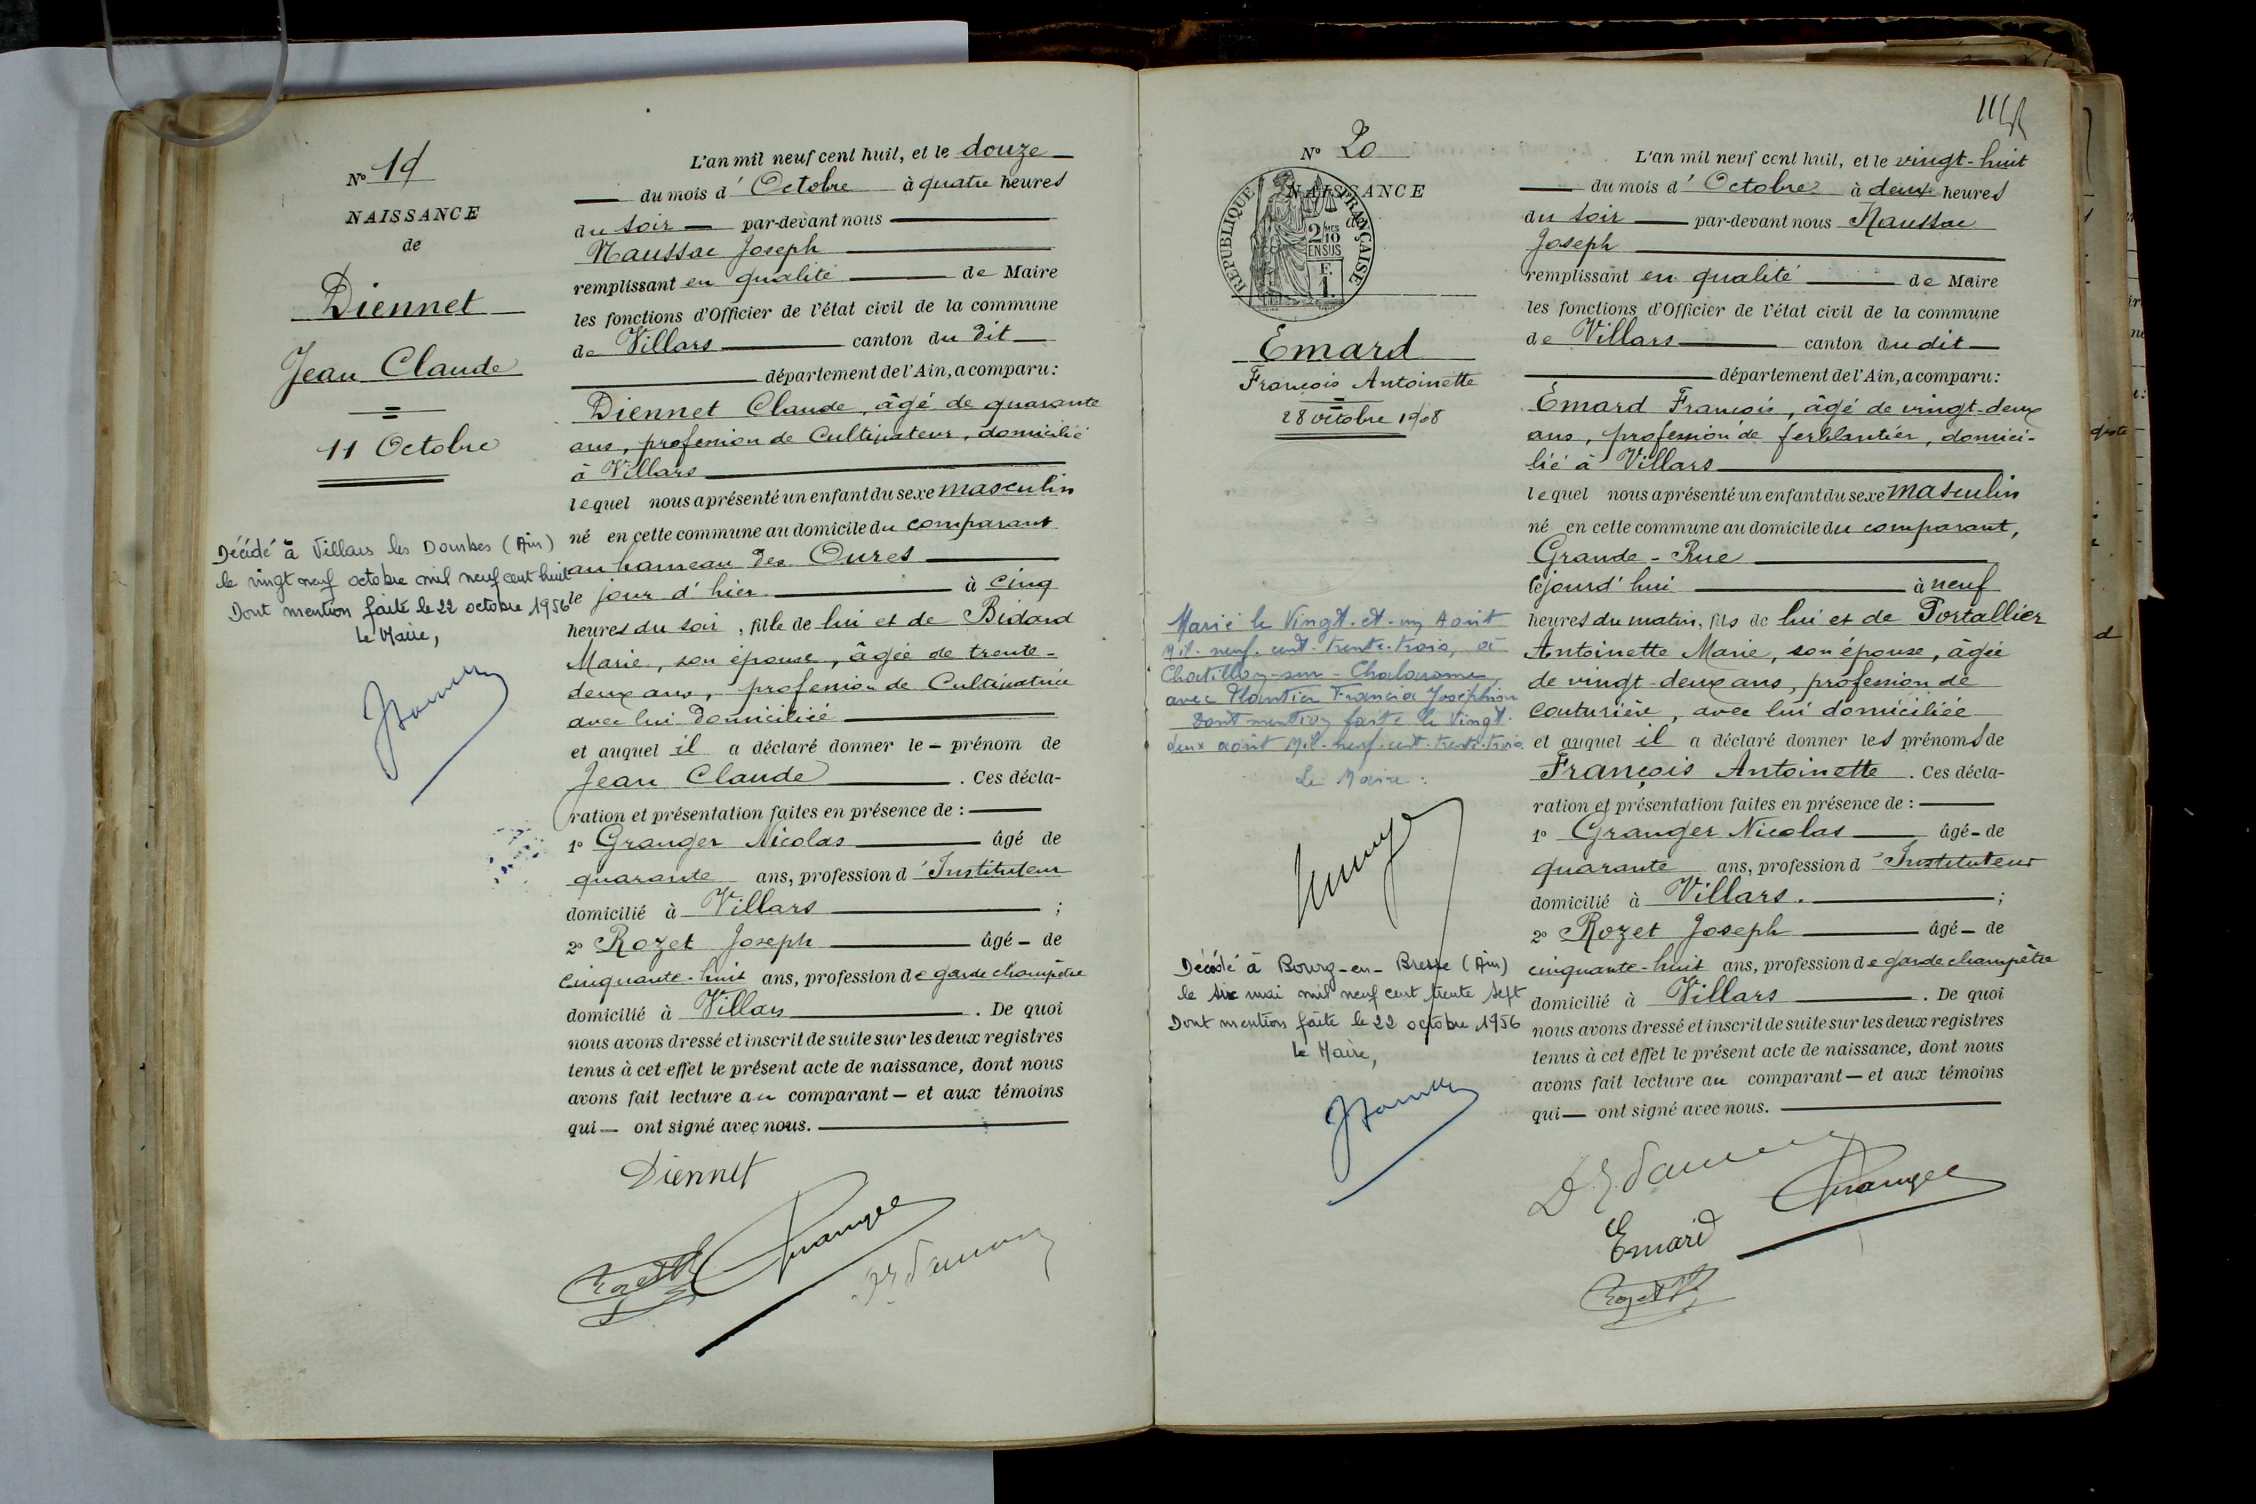 Nº 19
NAISSANCE
de
Diennet
Jean Claude
11 Octobre
Décédé à Villars les Dombes (Ain)
le vingt neuf octobre mil neuf cent huit
Dont mention faite le 22 octobre 1956
Le Maire,
L'an mil neuf cent huit, et le douze
du mois d'Octobre à quatre heures
du soir par-devant nous
Naussac Joseph
remplissant en qualité de Maire
les fonctions d'Officier de l'état civil de la commune
de Villars canton du dit
département de l'Ain, a comparu:
Diennet Claude, âgé de quarante
ans, profession de Cultivateur, domicilié
à Villars
lequel nous a présenté un enfant du sexe masculin
né en cette commune au domicile du comparant
au hameau des Oures
le jour d'hier à cinq
heures du soir, fille de lui et de Bidard
Marie, son épouse, âgée de trente-
deux ans, profession de Cultivatrice
avec lui domiciliée
et auquel il a déclaré donner le prénom de
Jean Claude. Ces décla-
ration et présentation faites en présence de:
1º Granger Nicolas âgé de
quarante ans, profession d'Instituteur
domicilié à Villars;
2º Rozet Joseph âgé de
cinquante-huit ans, profession de garde champêtre
domicilié à Villars. De quoi
nous avons dressé et inscrit de suite sur les deux registres
tenus à cet effet le présent acte de naissance, dont nous
avons fait lecture au comparant et aux témoins
qui ont signé avec nous.
Diennet
Granger
Nº 20
NAISSANCE
de
REPUBLIQUE FRANÇAISE
2/10 EN SUS
F. 1.
Emard
François Antoinette
28 octobre 1908
Marié le Vingt-et-un Août
Mil-neuf-cent-trente-trois, à
Chatillon-sur-Chalaronne,
avec Plantier Francia Joséphine
Dont mention faite le Vingt-
deux août Mil-neuf-cent-trente-trois
Le Maire:
Décédé à Bourg-en-Bresse (Ain)
le six mai mil neuf cent trente sept
Dont mention faite le 22 octobre 1956
Le Maire,
L'an mil neuf cent huit, et le vingt-huit
du mois d'Octobre à deux heures
du soir par-devant nous Naussac
Joseph
remplissant en qualité de Maire
les fonctions d'Officier de l'état civil de la commune
de Villars canton du dit
département de l'Ain, a comparu:
Emard François, âgé de vingt-deux
ans, profession de ferblantier, domici-
lié à Villars
lequel nous a présenté un enfant du sexe masculin
né en cette commune au domicile du comparant,
Grande-Rue
cejourd'hui à neuf
heures du matin, fils de lui et de Portallier
Antoinette Marie, son épouse, âgée
de vingt-deux ans, profession de
couturière, avec lui domiciliée
et auquel il a déclaré donner les prénoms de
François Antoinette. Ces décla-
ration et présentation faites en présence de:
1º Granger Nicolas âgé de
quarante ans, profession d'Instituteur
domicilié à Villars.;
2º Rozet Joseph âgé de
cinquante-huit ans, profession de garde champêtre
domicilié à Villars. De quoi
nous avons dressé et inscrit de suite sur les deux registres
tenus à cet effet le présent acte de naissance, dont nous
avons fait lecture au comparant et aux témoins
qui ont signé avec nous.
Granger
Emard
Rozet